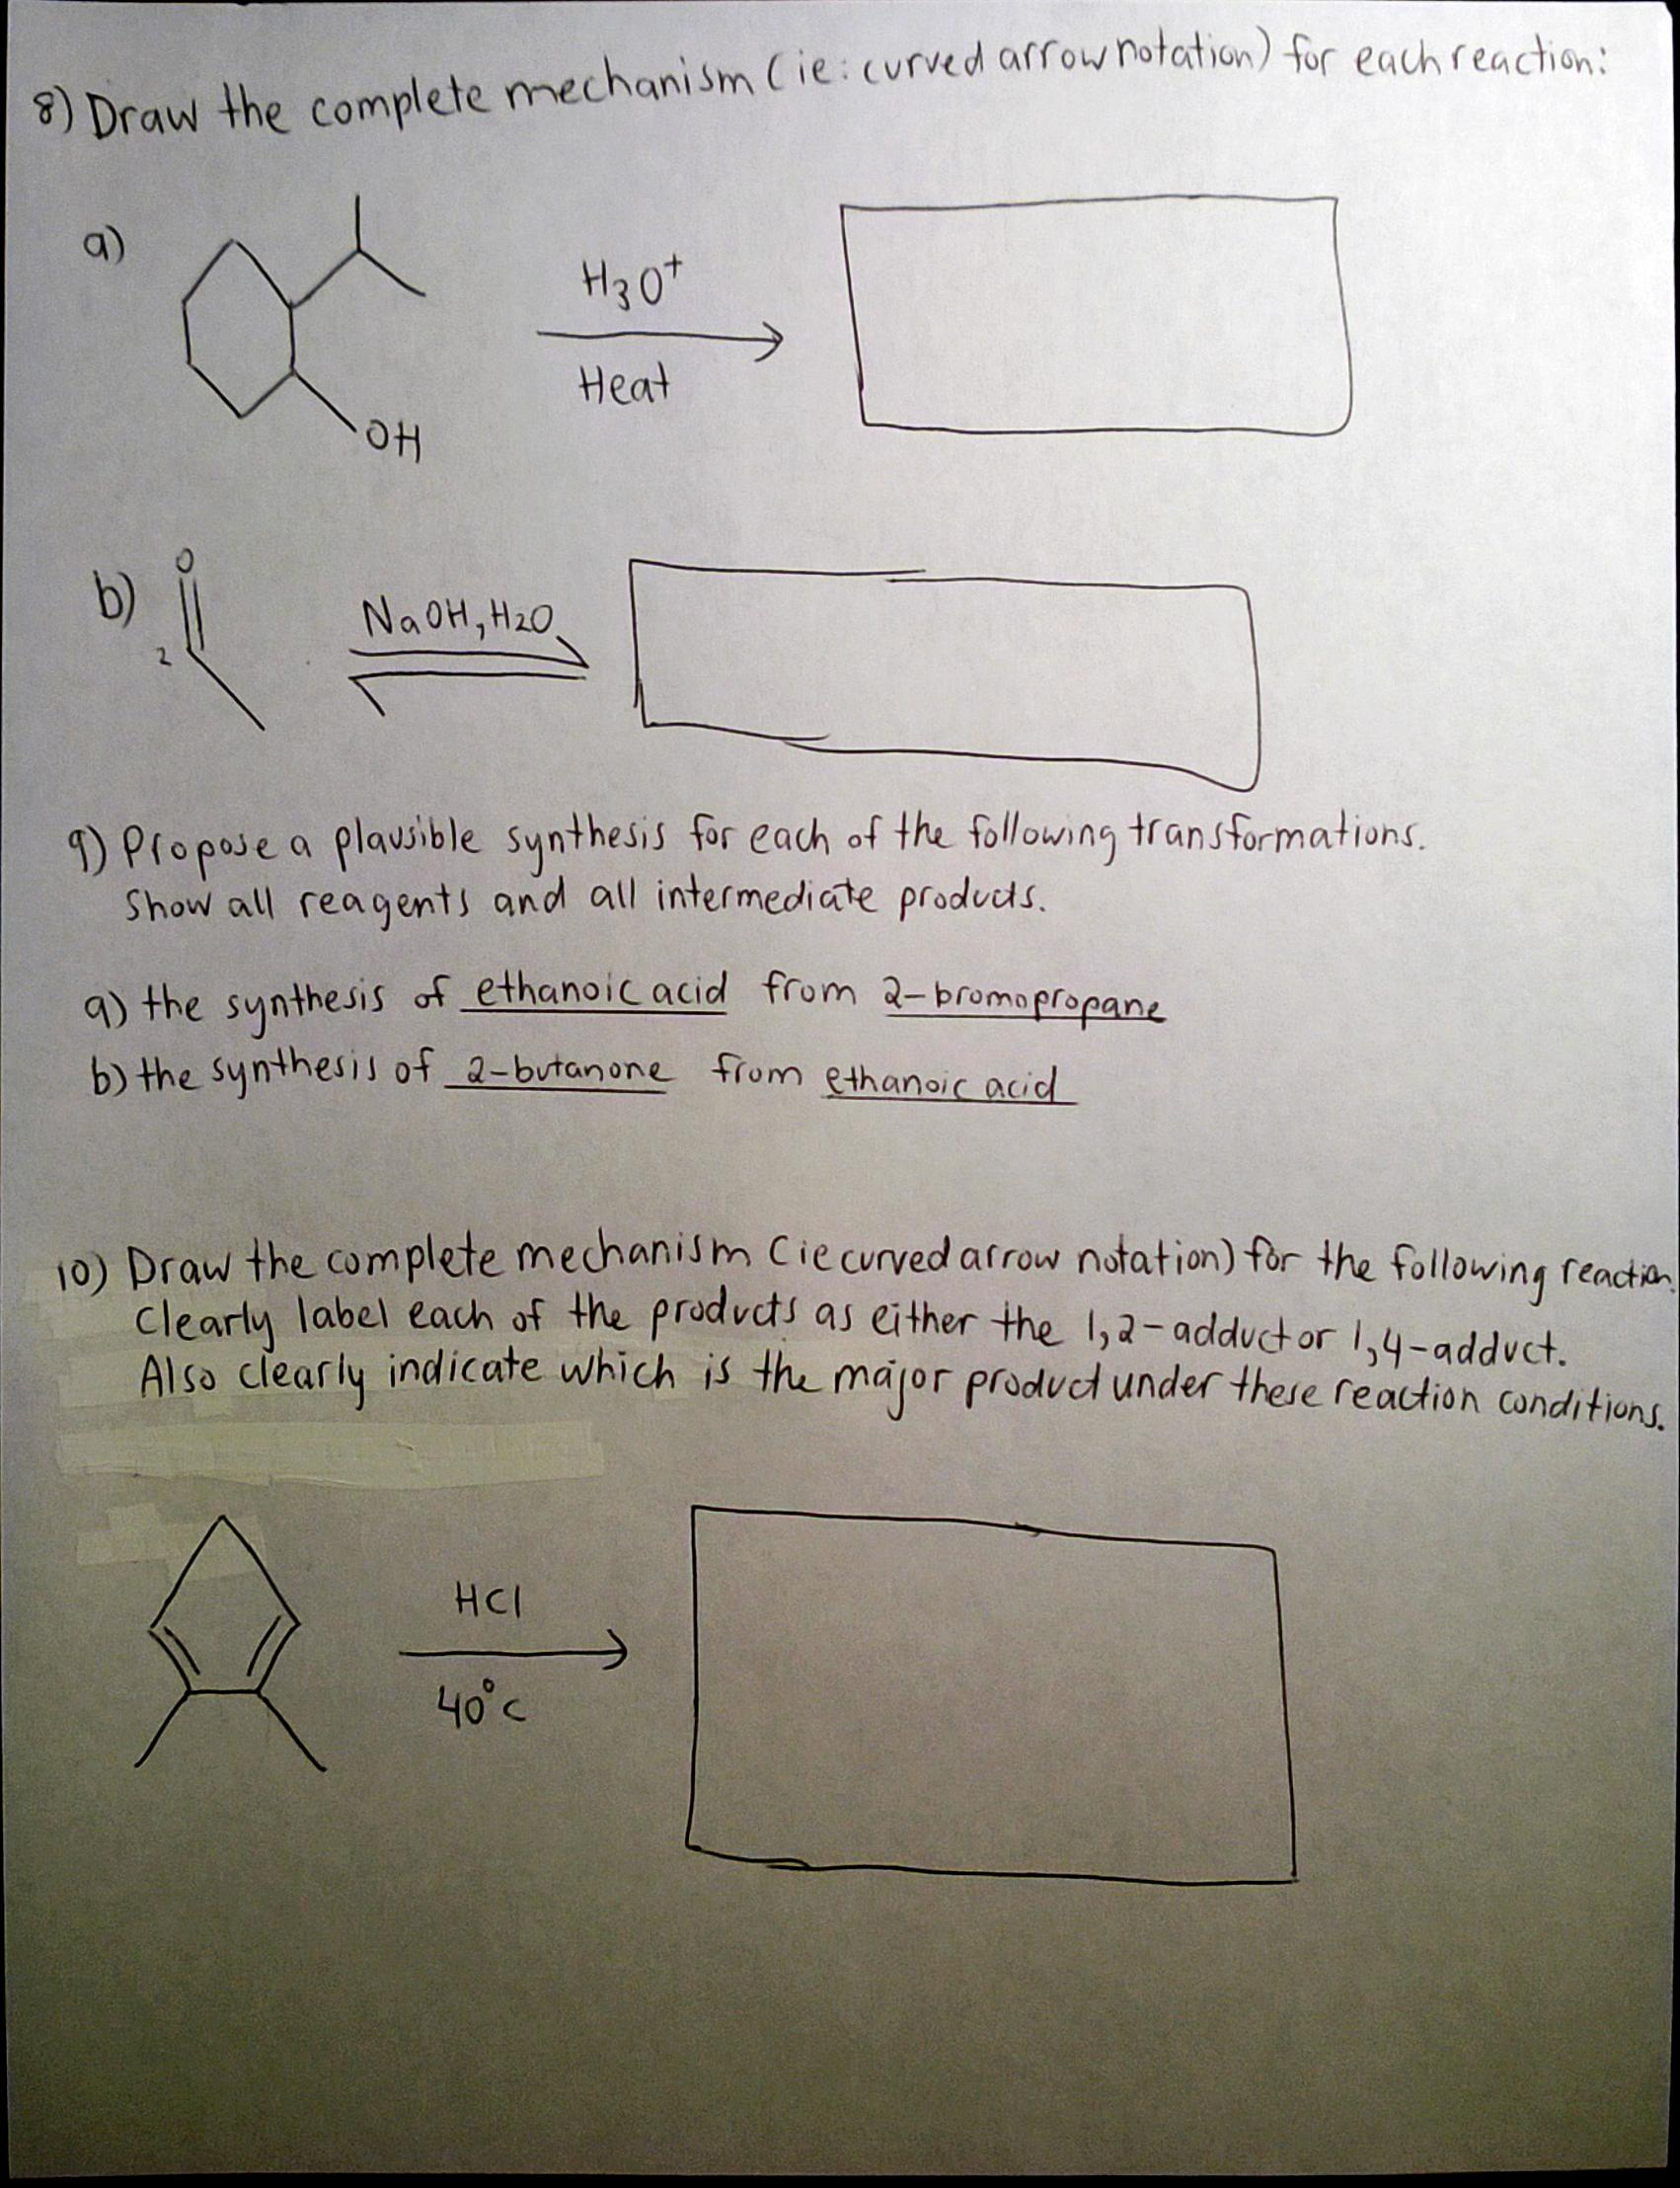 8) Draw the complete mechanism (ie: curved arrow notation) for each reaction:
a)
H3O+
Heat
OH
b)
O
2
NaOH, H2O
9) Propose a plausible synthesis for each of the following transformations.
Show all reagents and all intermediate products.
a) the synthesis of ethanoic acid from 2-bromopropane
b) the synthesis of 2-butanone from ethanoic acid
10) Draw the complete mechanism (ie curved arrow notation) for the following reaction.
Clearly label each of the products as either the 1,2-adduct or 1,4-adduct.
Also clearly indicate which is the major product under these reaction conditions.
HCl
40°C